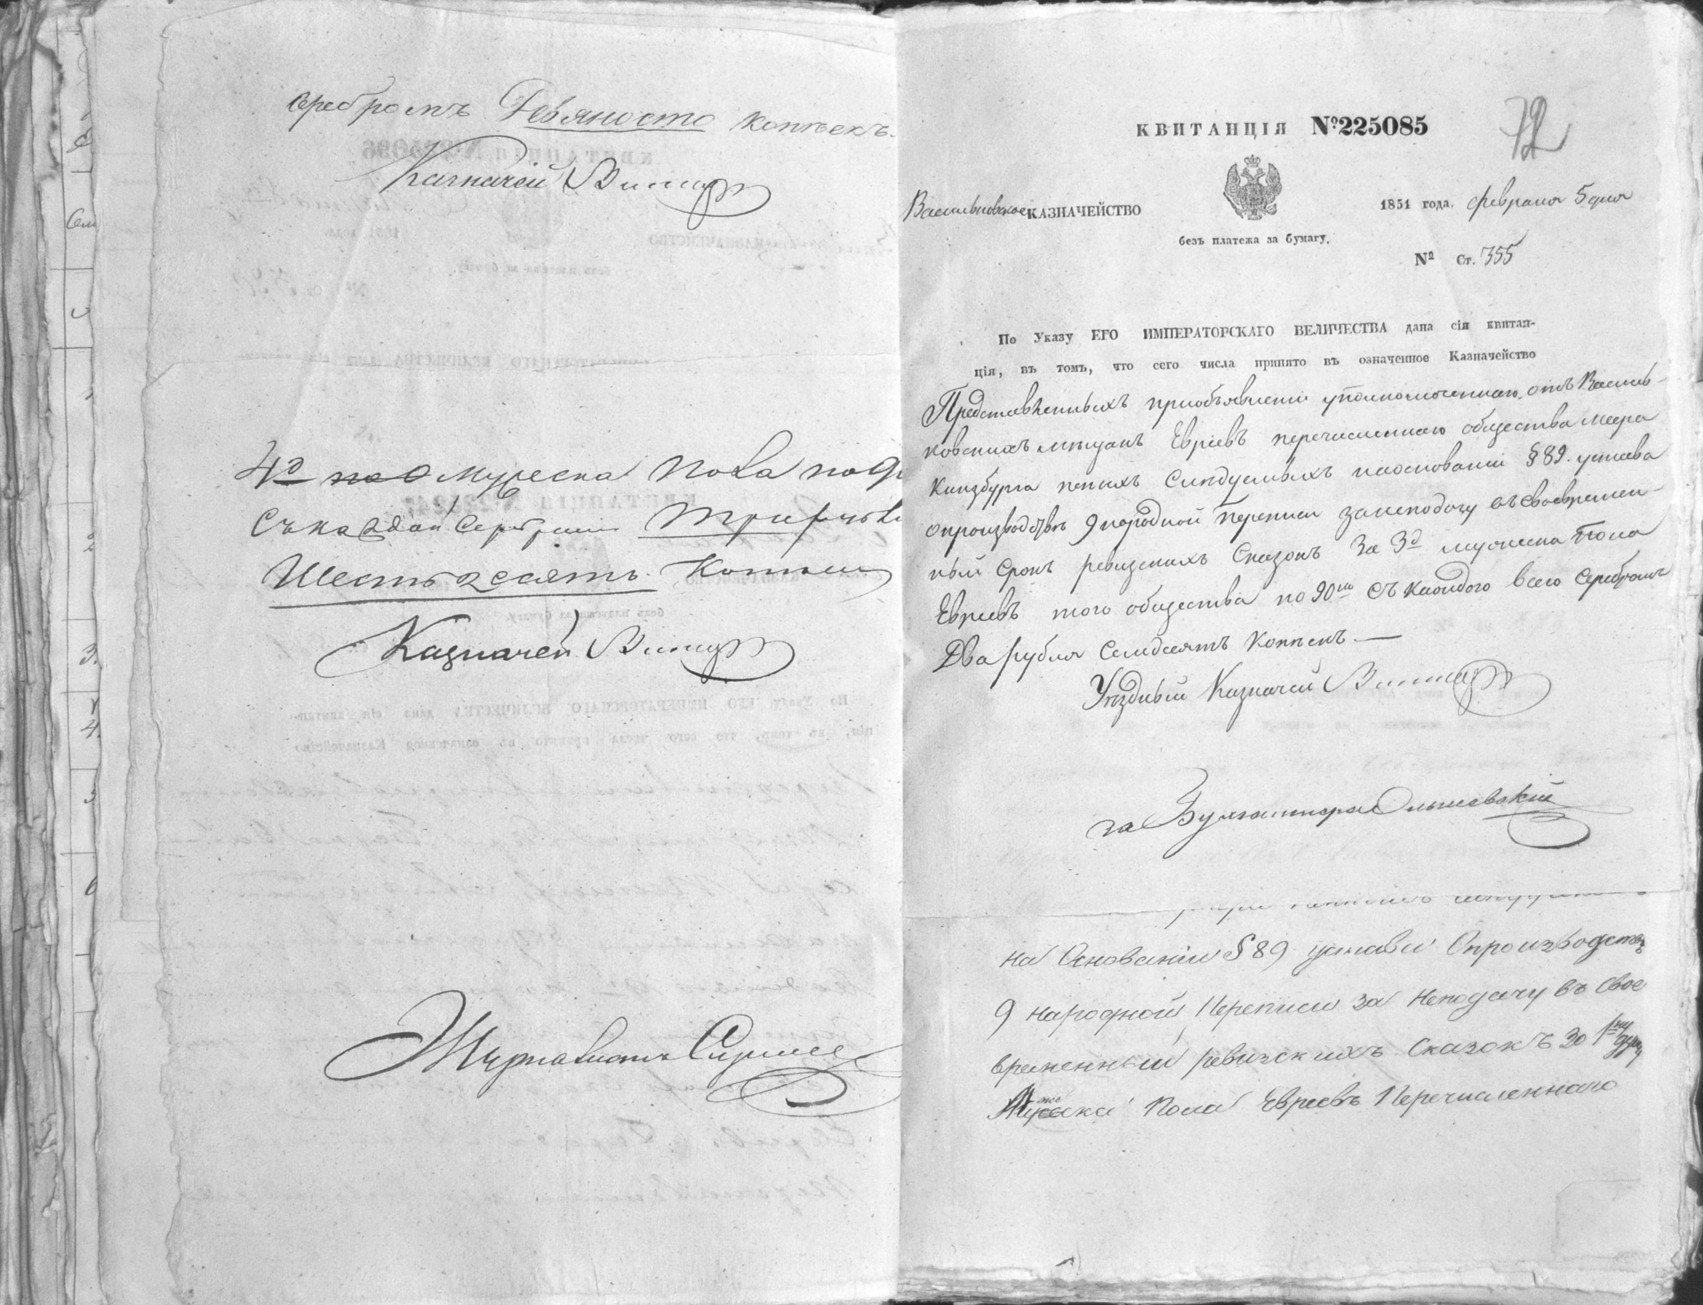 серебромъ Девяносто копѣекъ.
Казначей
4о мужеска пола по
съ каждой серебромъ три рубл
Шестьдесятъ копѣекъ
Казначей
Журналистъ
72
КВИТАНЦІЯ №225085
Васильковское КАЗНАЧЕЙСТВО
1851 года. февраля 5 дня
безъ платежа за бумагу.
№ Ст. 355
По Указу ЕГО ИМПЕРАТОРСКАГО ВЕЛИЧЕСТВА дана сія квитан-
ція, въ томъ, что сего числа принято въ означенное Казначейство
Представленныхъ при объявленіи уполномоченнаго отъ Василь-
ковскихъ мѣщанъ Евреевъ перечисленнаго общества Меера
Кинзбурга пенныхъ слѣдуемыхъ на основаніи §89. устава
о производствѣ 9 народной переписи за неподачу въ своевремен-
ный срокъ ревизскихъ сказокъ за 3д мужеска пола
Евреевъ того общества по 90ко съ каждого всего серебромъ
Два рубля семдесятъ копѣекъ.—
Уѣздный Казначей
за Бухгалтера Ольшевскій
на основаніи §89 устава о производствѣ
9 народной переписи за неподачу въ свое
временный ревизскихъ сказокъ за 1ну душу
мужска пола Евреевъ перечисленнаго